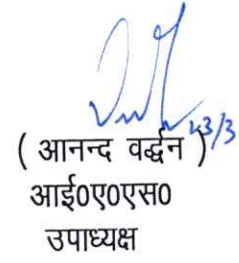 23/3
( आनन्द वर्द्धन )
आई0ए0एस0
उपाध्यक्ष